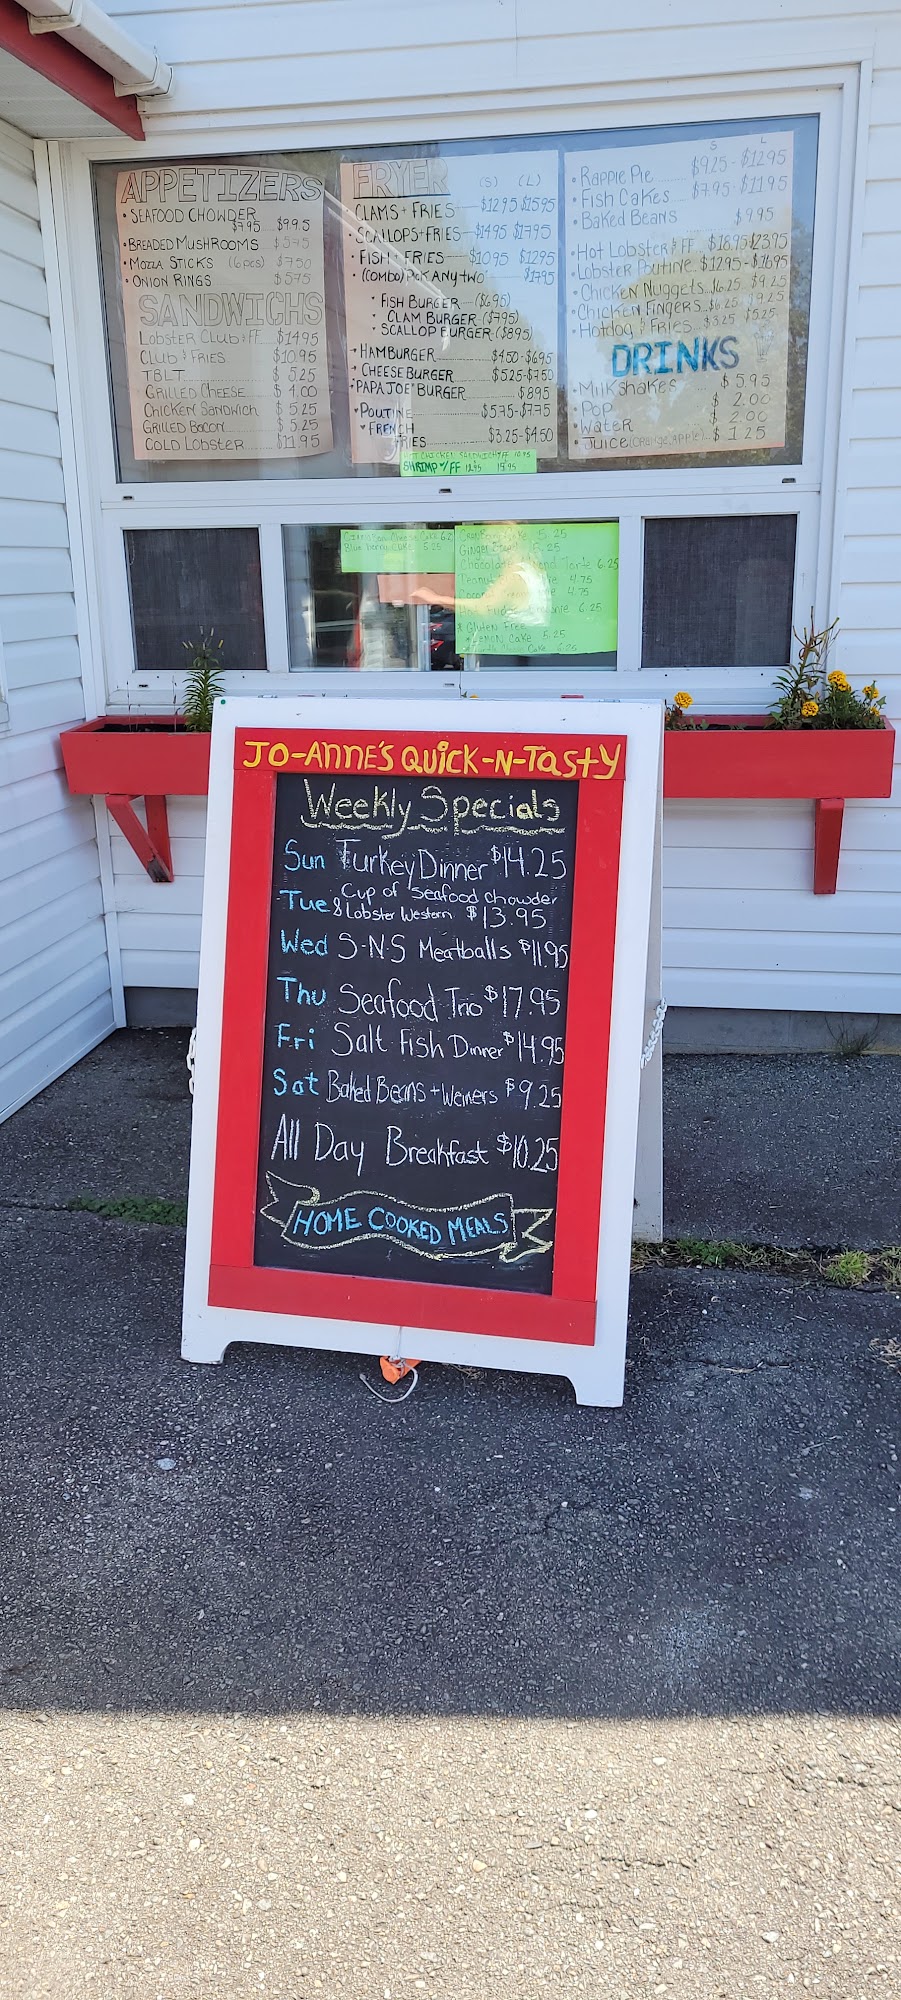 APPETIZERS
• SEAFOOD CHOWDER
$7.95 $9.95
• BREADED MUSHROOMS $5.75
• MOZZA STICKS (6pcs) $7.50
• ONION RINGS $5.75
SANDWICHS
LOBSTER CLUB & FF $14.95
CLUB & FRIES $10.95
TBLT $5.25
GRILLED CHEESE $4.00
CHICKEN SANDWICH $5.25
GRILLED BACON $5.25
COLD LOBSTER $11.95
FRYER (S) (L)
• CLAMS + FRIES $12.95 $15.95
• SCALLOPS + FRIES $14.95 $17.95
• FISH + FRIES $10.95 $12.95
• (COMBO) PICK ANY TWO $17.95
• FISH BURGER ($6.95)
• CLAM BURGER ($7.95)
• SCALLOP BURGER ($8.95)
• HAMBURGER $4.50-$6.95
• CHEESE BURGER $5.25-$7.50
• PAPA JOE BURGER $8.95
• POUTINE $5.75-$7.75
• FRENCH
FRIES $3.25-$4.50
HOT CHICKEN SANDWICH FF 10.95
SHRIMP w/ FF 12.95 15.95
S L
• RAPPIE PIE $9.25-$12.95
• FISH CAKES $7.95-$11.95
• BAKED BEANS $9.95
• HOT LOBSTER & FF $18.95 $23.95
• LOBSTER POUTINE $12.95-$16.95
• CHICKEN NUGGETS $6.25 $9.25
• CHICKEN FINGERS $6.25 $9.25
• HOTDOG & FRIES $3.25 $5.25
DRINKS
• MILKSHAKES $5.95
• POP $2.00
• WATER $2.00
• JUICE (ORANGE, APPLE) $1.25
Cheese Cake
Blueberry Cake 5.25
5.25
Ginger 5.25
Chocolate Tarte 6.25
Peanut 4.75
Coconut Cream 4.75
Hot Fudge Brownie 6.25
* Gluten Free
Lemon Cake 5.25
Cake 6.25
JO-ANNE'S QUICK-N-TASTY
Weekly Specials
Sun Turkey Dinner $14.25
Tue Cup of Seafood Chowder
& Lobster Western $13.95
Wed S-N-S Meatballs $11.95
Thu Seafood Trio $17.95
Fri Salt Fish Dinner $14.95
Sat Baked Beans + Weiners $9.25
All Day Breakfast $10.25
HOME COOKED MEALS